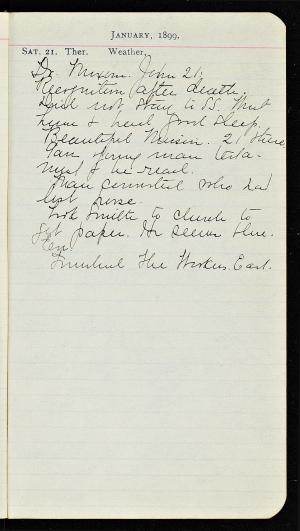 JANUARY, 1899.
SAT. 21. Ther. Weather,
Dr. Mixem. John 21:
Recognition after death.
Did not stay to S.S. Went
home & had good sleep.
Beautiful Music. 2
Gave young man testa-
ment & he read.
Man converted who had
lost purse.
Took Smith to church to
get paper. He seems blue.
Eve
Finished The Workers East.